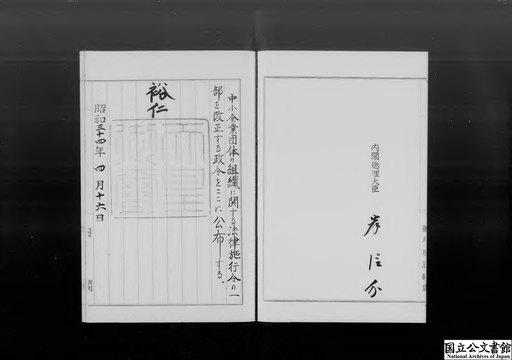 中小企業団体の組織に関する法律施行令の一
部を改正する政令をここに公布する。
裕仁
天皇
御璽
昭和三十四年四月十六日
内閣総理大臣
岸信介
国立公文書館
National Archives of Japan